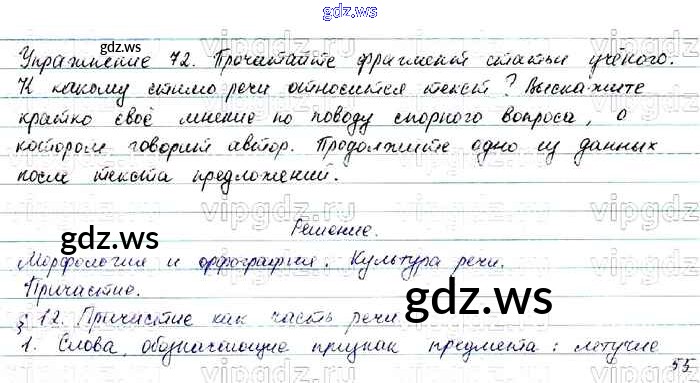 gdz.ws
Упражнение 72. Прочитайте фрагмент статьи учёного.
К какому стилю речи относится текст? Выскажите
кратко своё мнение по поводу спорного вопроса, о
котором говорит автор. Продолжите одно из данных
после текста предложений.
Решение.
Морфология и орфография. Культура речи.
Причастие.
§ 12. Причастие как часть речи
1. Слова, обозначающие признак предмета: летучие
55
gdz.ws
gdz.ws
gdz.ws
gdz.ws